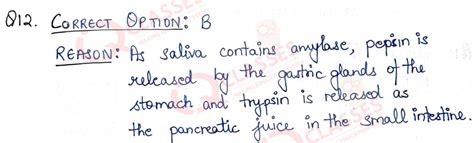 Q12. CORRECT OPTION: B
REASON: As saliva contains amylase, pepsin is
released by the gastric glands of the
stomach and trypsin is released as
the pancreatic juice in the small intestine.
CLASSES
CLASSES